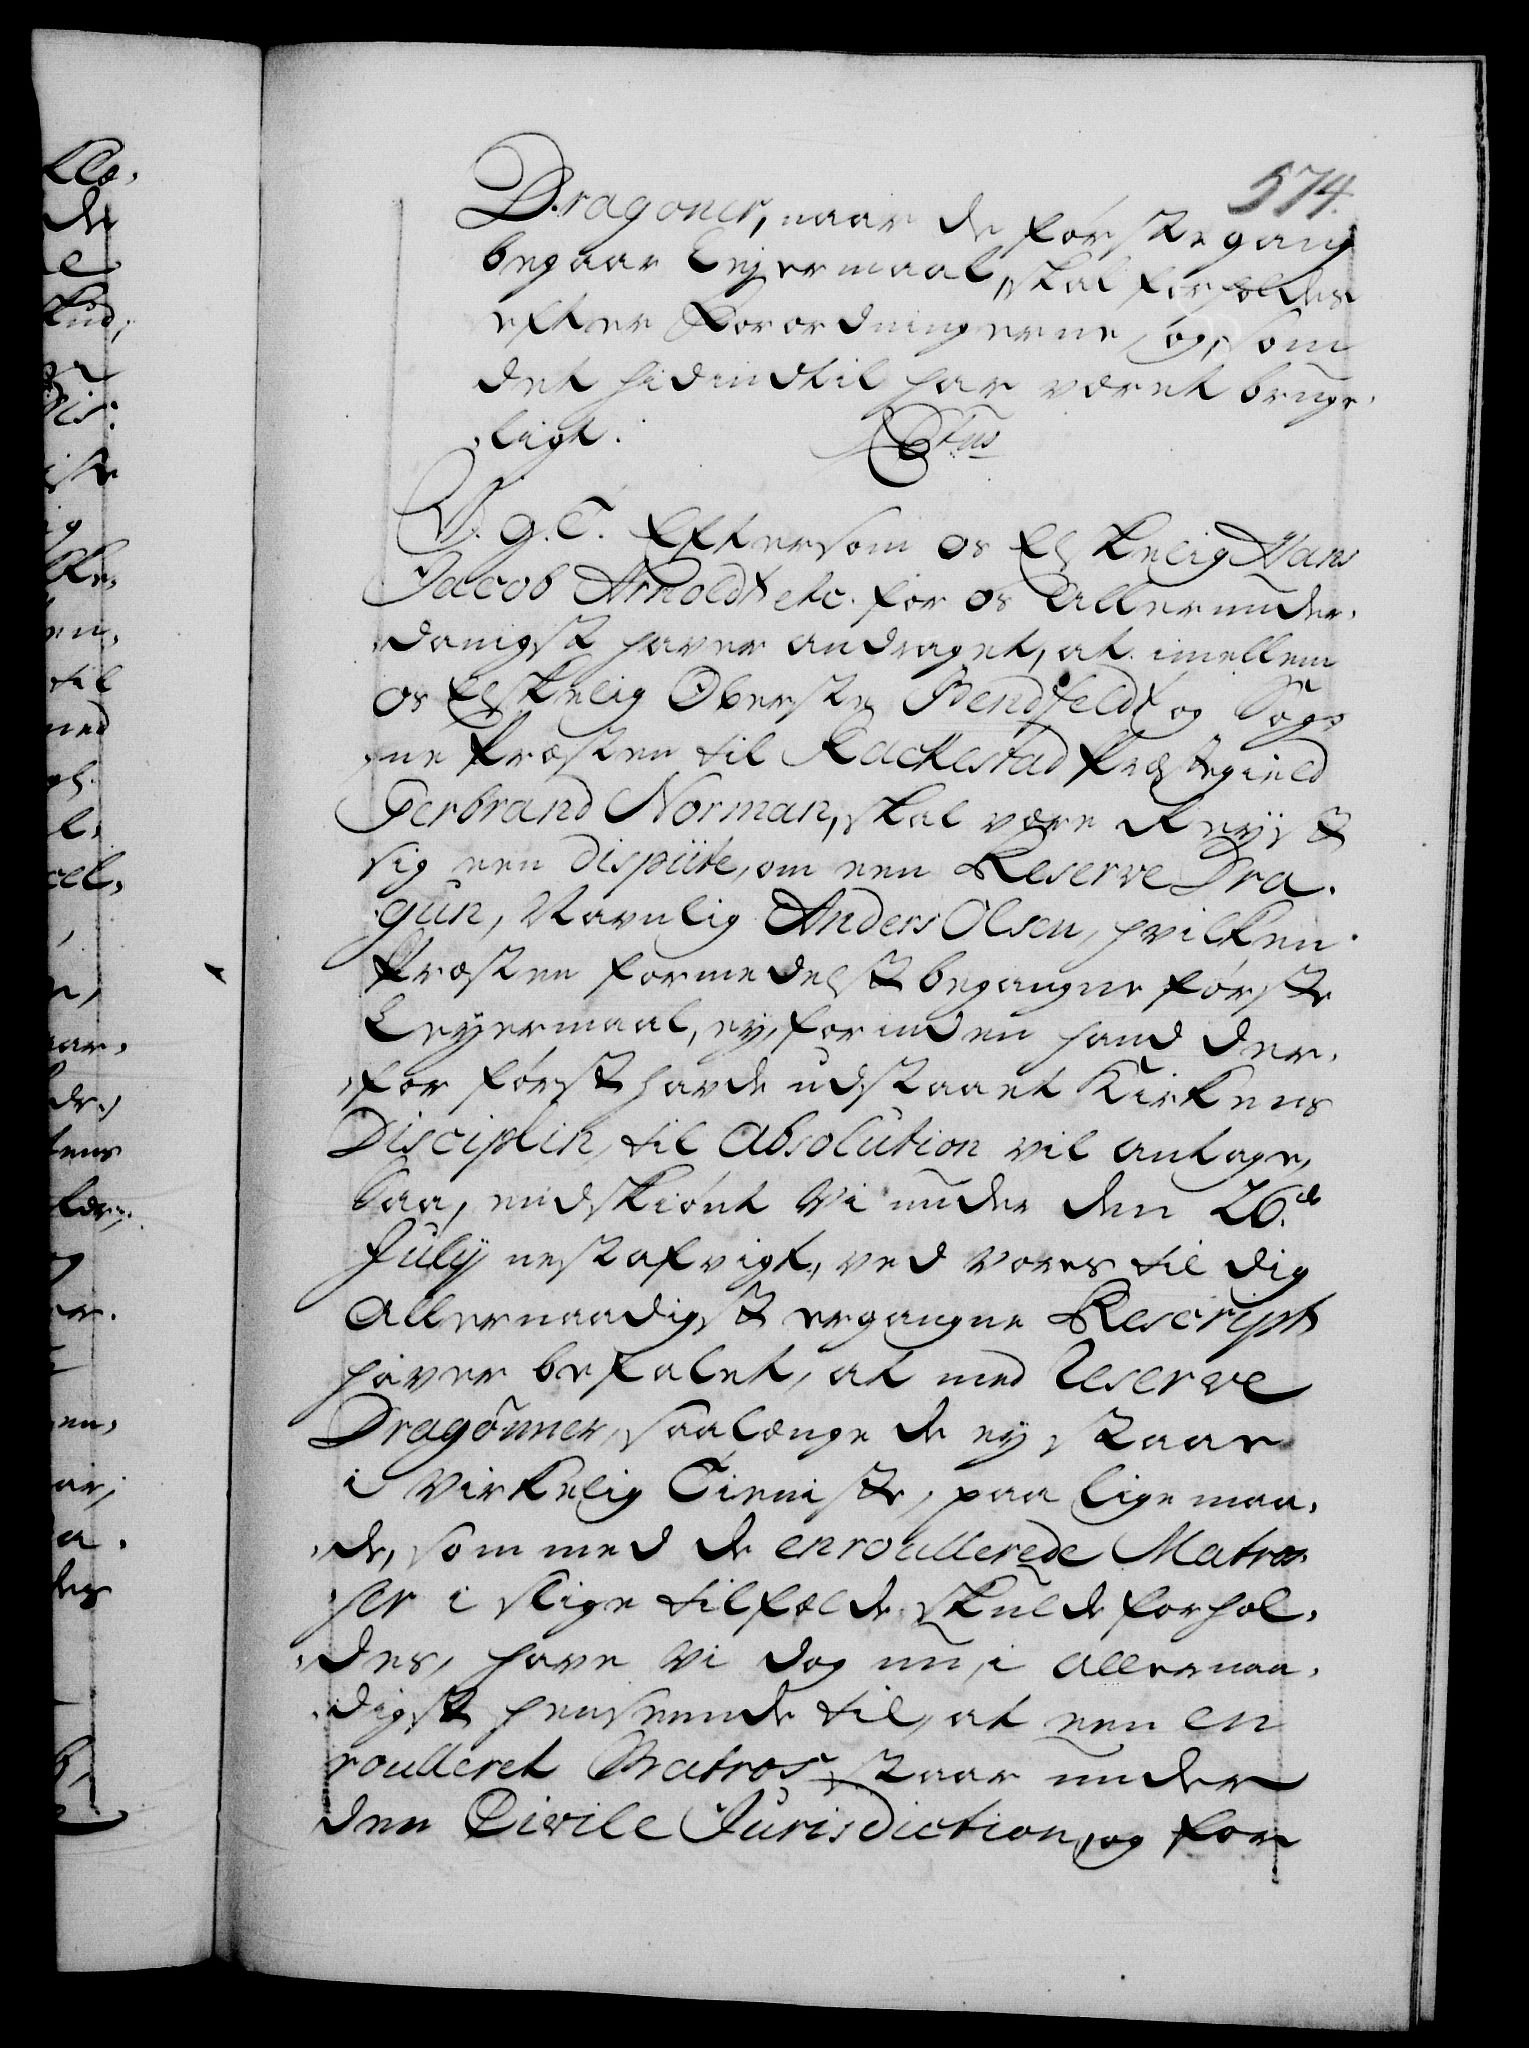 574.
Dragoner, naar de første gang
begaar Leyermaal, skal forholdes
efter Forordningerne, og, som
det hidindtil har været bruge,
,ligt.
V. G. T. Eftersom os Elskelig Hans
Jacob Arnoldt etc. for os Allerunder,
,danigst haver andraget, at imellem
os Elskelig Oberste Bendfeldt og Sog,
,ne Præsten til Rackestad Præstegield
Gerbrand Norman, skal være Reyst
sig een dispüte, om een Reserve Dra,
,gün, Navnlig Anders Olsen, hvilken
Præsten formedelst begangne første
Leyermaal, ey, forinden hand der,
,for først havde udstaaet Kirkens
Disciplin, til Absolution vil antage,
Saa, endskiønt Vi under den 26.de
Julij nestafvigt, ved Vores til dig
Allernaadigst ergangne Rescript
haver befalet, at med Reserve
Dragouner, saalænge de ey staar
i Virkelig Tieniste, paa lige maa,
,de, som med de enroullerede Matro,
,ser i slige tilfælde skulde forhol,
,des, have Vi dog nu, i allernaa,
,digst henseende til, at een en
roulleret Matros staar under
den Civile Jurisdiction, og for